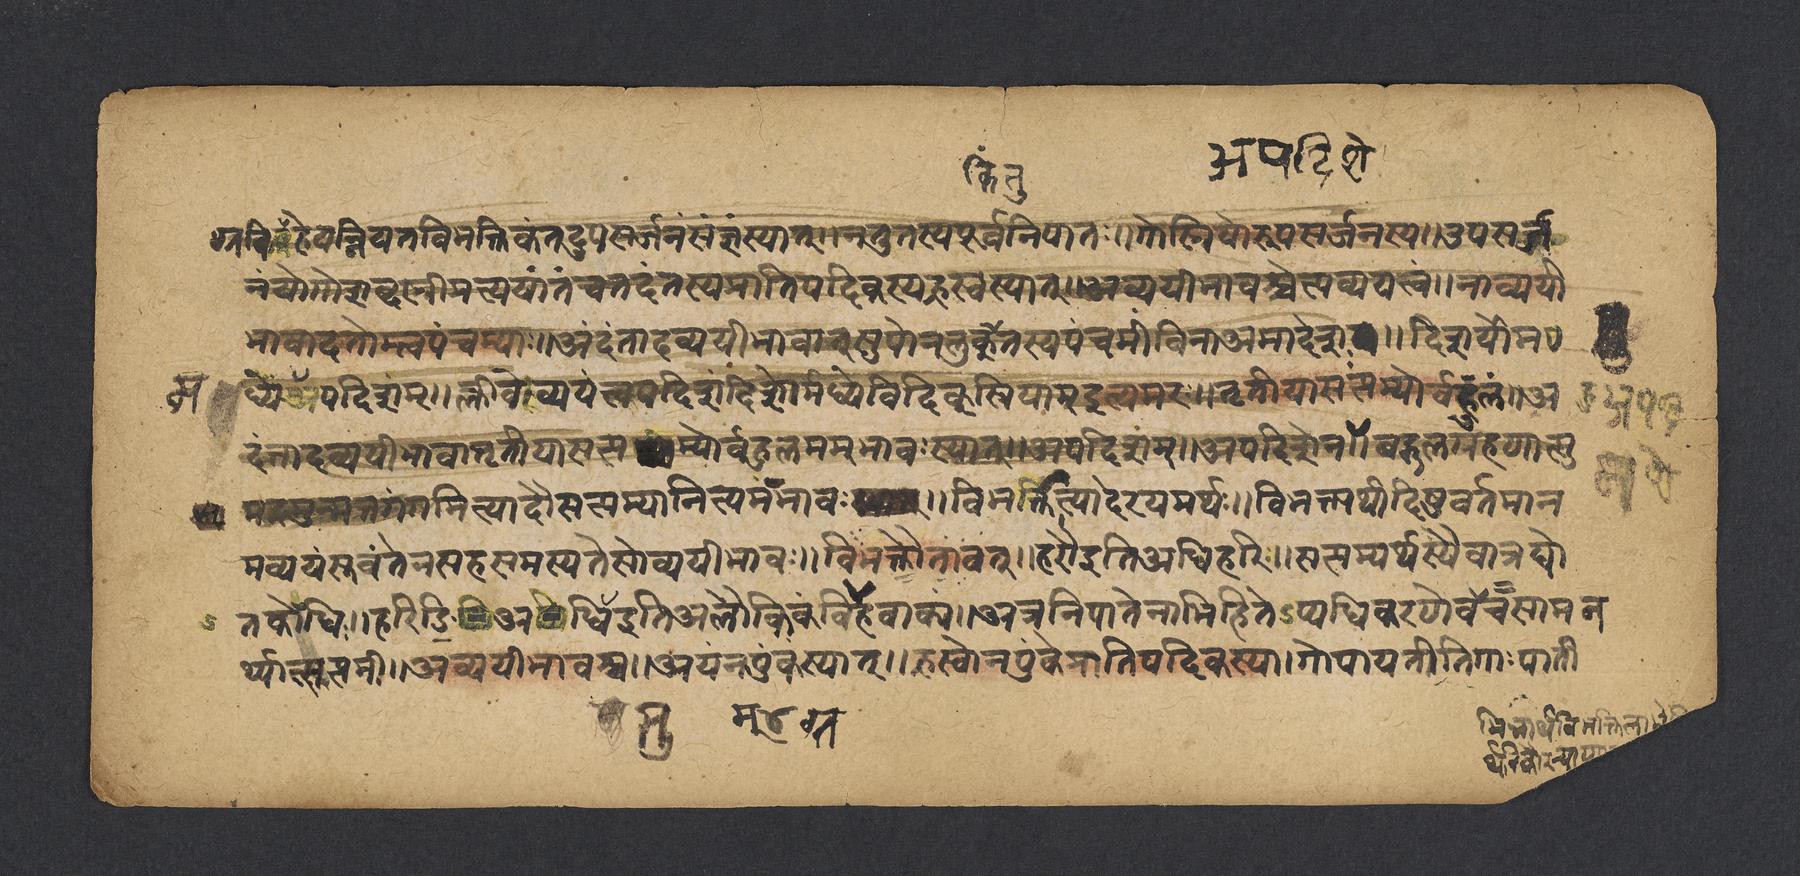 किंतु
अपदिशे
ग्नविग्रहेयन्नियतविभक्तिकंतदुपसर्जनंसंज्ञंस्यात्॥ननुतस्यपूर्वनिपातः॥गोस्त्रियोरुपसर्जनस्य॥उपसर्ज
नंयोगोशब्दःस्त्रीप्रत्ययांतंचतदंतस्यप्रातिपदिकस्यह्रस्वःस्यात्॥अव्ययीभावश्चेत्यव्ययत्वं॥नाव्ययी
भावादतोम्त्वपंचम्याः॥अदंतादव्ययीभावात्सुपोनलुक्तस्यपंचमींविनाअमादेशः॥दिशयोर्म
ध्येअपदिशम्॥क्लीबाव्ययंत्वपदिशंदिशोर्मध्येविदिक्स्त्रियामइत्यमरः॥तृतीयासप्तम्योर्बहुलं॥अ
दंतादव्ययीभावात्तृतीयासप्तम्योर्बहुलमम्भावःस्यात्॥अपदिशम्॥अपदिशेन॥बहुलग्रहणात्सु
मद्रमुन्मत्तगंगमित्यादौसप्तम्यानित्यमंभावः॥विभक्तीत्यादेरयमर्थः॥विभक्त्यर्थादिषुवर्तमान
मव्ययंसुबंतेनसहसमस्यतेसोव्ययीभावः॥विभक्तौतावत्॥हरौइतिअधिहरि॥सप्तम्यर्थस्यैवात्रद्यो
तकोधिः॥हरिङिअधिइतिअलौकिकंविग्रहवाक्यं॥अत्रनिपातेनाभिहितेऽप्यधिकरणेवचनसाम
र्थ्यात्सप्तमी॥अव्ययीभावश्च॥अयंनपुंकंस्यात्॥ह्रस्वोनपुंकेप्रातिपदिकस्या।गोपायतीतिगाःपाती